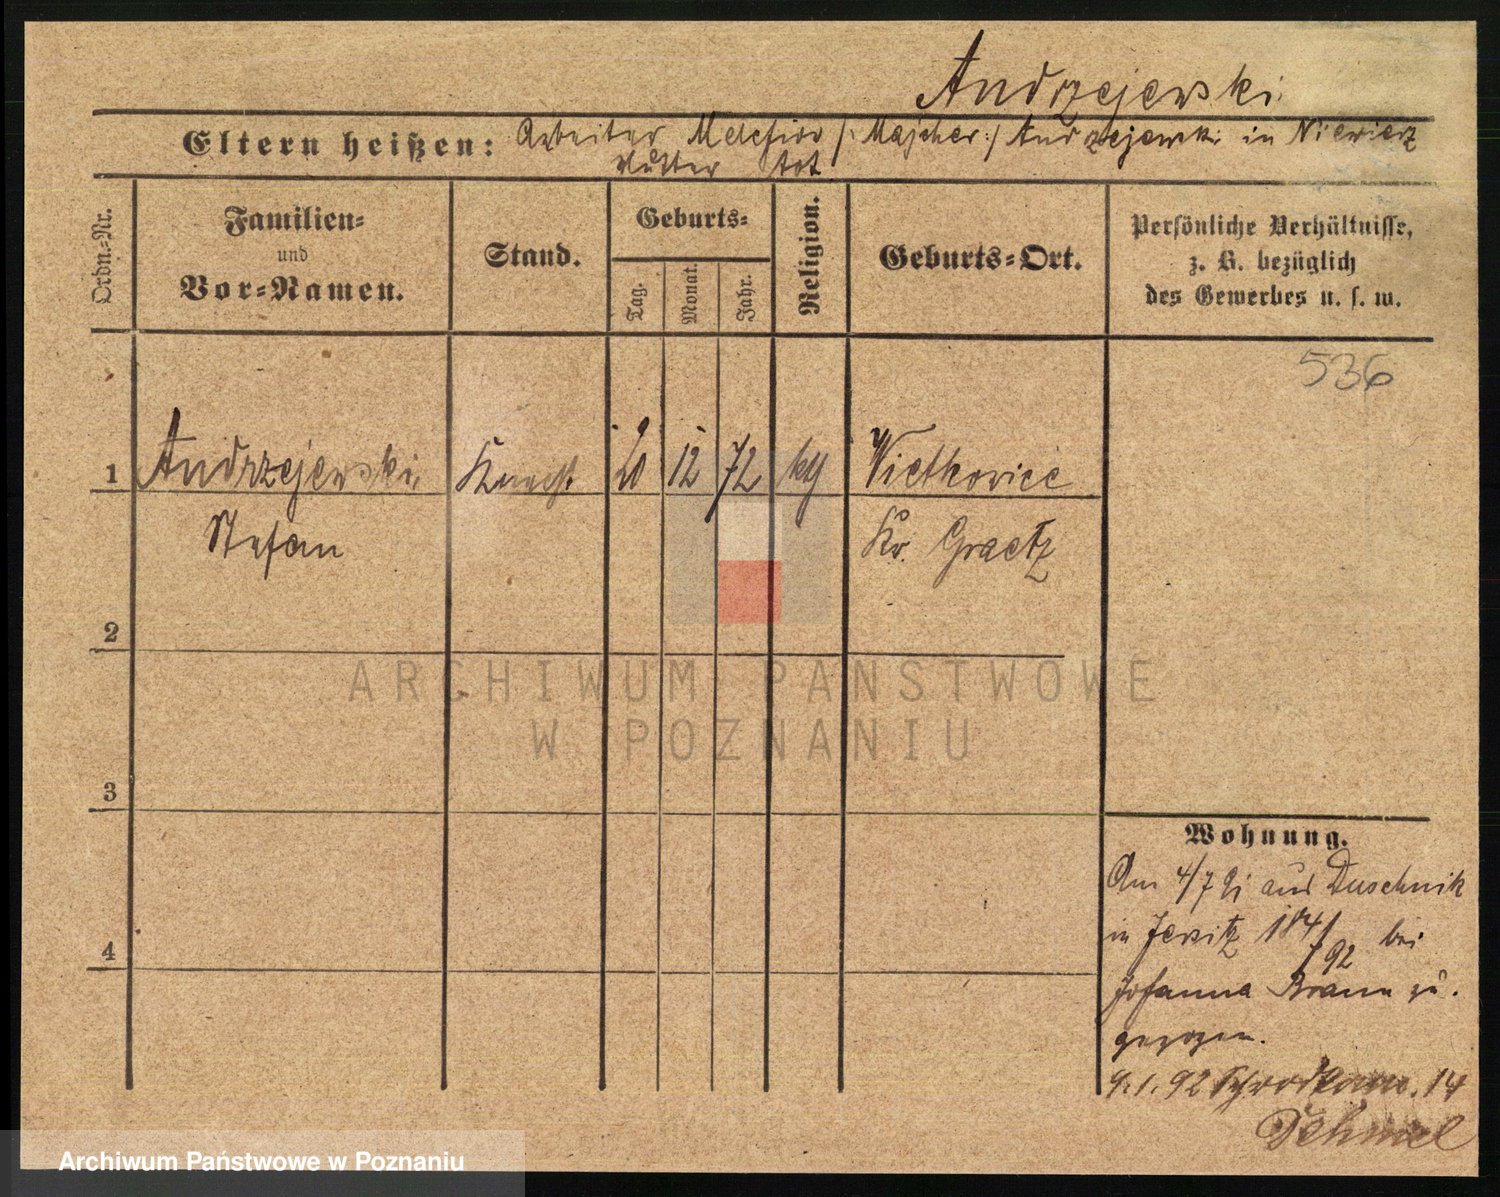 Andrzejewski
Eltern heißen: Arbeiter Melchior /: Majcher :/ Andrzejewski in Niewierz
Mutter tot
Ordn.-Nr.
Familien-
und
Vor-Namen.
Stand.
Geburts-
Tag.
Monat.
Jahr.
Religion.
Geburts-Ort.
Persönliche Verhältnisse,
z. B. bezüglich
des Gewerbes u. s. w.
536
1 Andrzejewski Knecht 20 12 72 kg Wietkowice
Stefan Kr. Graetz
2
3
4
Wohnung.
Am 4/7 91 aus Duschnik
in Jersitz 184/ bei
792
Johanna Braun zu-
gezogen.
9.1.92 14
ARCHIWUM PAŃSTWOWE
W POZNANIU
Archiwum Państwowe w Poznaniu